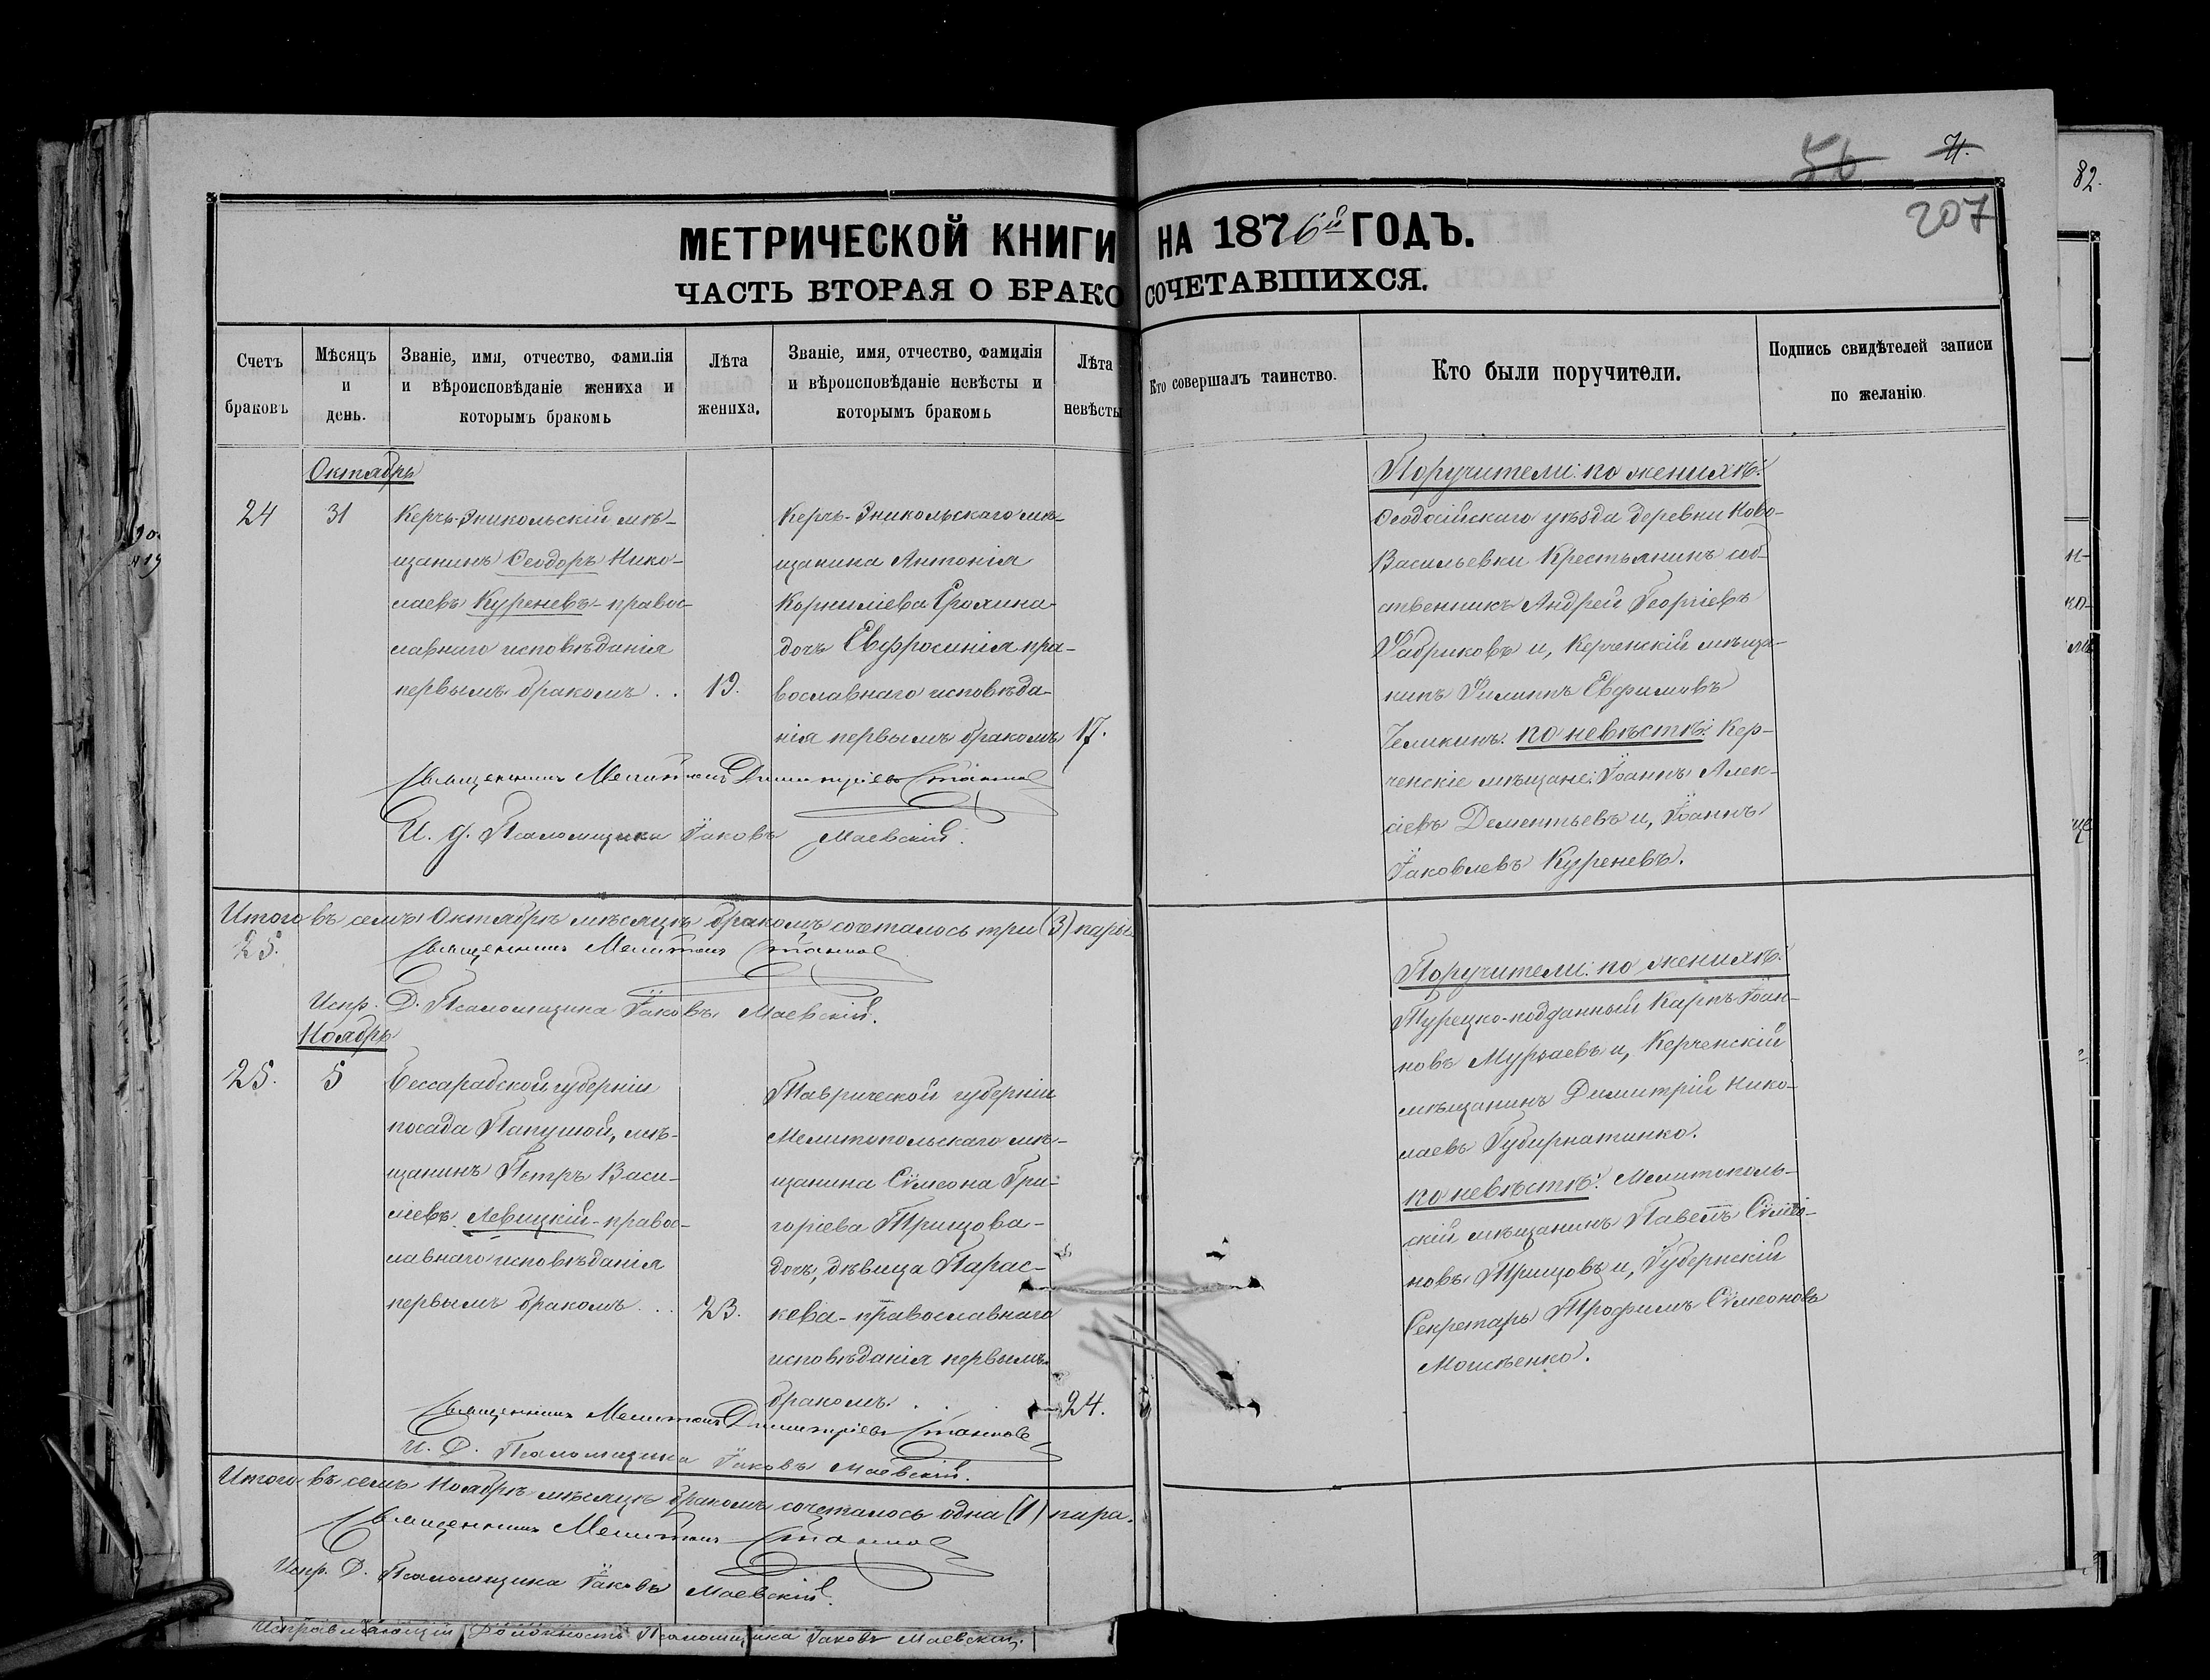 56 71.
82.
207
МЕТРИЧЕСКОЙ КНИГИ НА 1876й ГОДЪ.
ЧАСТЬ ВТОРАЯ О БРАКОСОЧЕТАВШИХСЯ.
Счетъ
браковъ
Мѣсяцъ
и
день.
Званіе, имя, отчество, фамилія
и вѣроисповѣданіе жениха и
которымъ бракомъ
Лѣта
жениха.
Званіе, имя, отчество, фамилія
и вѣроисповѣданіе невѣсты и
которымъ бракомъ
Лѣта
невѣсты
Кто совершалъ таинство.
Кто были поручители.
Подпись свидѣтелей записи
по желанію.
Октябрь
24
31
Керчь-Эникольскій мѣ-
щанинъ Ѳеодоръ Нико-
лаевъ Куреневъ - правос-
лавнаго исповѣданія
первымъ бракомъ . .
19.
Керчь-Эникольскаго мѣ-
щанина Антонія
Корниліева Ерохина
дочь Евфросинія пра-
вославнаго исповѣда-
нія первымъ бракомъ
17.
Священникъ Мелитонъ Димитріевъ Станковъ
И. д. Псаломщика Іаковъ Маевскій.
Поручители: по женихѣ:
Ѳеодосійскаго уѣзда деревни Ново-
Васильевки Крестьянинъ соб-
ственникъ Андрей Георгіевъ
Фабриковъ и, Керченскій мѣща-
нинъ Филиппъ Евфимовъ
Челикинъ. по невѣстѣ: Кер-
ченскіе мѣщане: Іоаннъ Алек-
сіевъ Дементьевъ и, Іоаннъ
Іаковлевъ Куреневъ.
Итого въ семъ Октябрѣ мѣсяцѣ бракомъ сочеталось три (3) пары
25.
Священникъ Мелитонъ Станковъ
Испр. Д. Псаломщика Іаковъ Маевскій.
Ноябрь
25.
5
Бессарабской губерніи
посада Папушой, мѣ-
щанинъ Петръ Васи-
ліевъ Левицкій - правос-
лавнаго исповѣданія
первымъ бракомъ . . .
23.
Таврической губерніи
Мелитопольскаго мѣ-
щанина Сѵмеона Гри-
горіева Трищова -
дочь, дѣвица Парас-
кева - православнаго
исповѣданія первымъ
бракомъ. . .
24.
Священникъ Мелитонъ Димитріевъ Станковъ
И. Д. Псаломщика Іаковъ Маевскій.
Поручители: по женихѣ:
Турецко-подданный Карпъ Іоан-
новъ Мурзаевъ и, Керченскій
мѣщанинъ Димитрій Нико-
лаевъ Губирнатинко.
по невѣстѣ: Мелитополь-
скій мѣщанинъ Павелъ Сѵмео-
новъ Трищовъ и, Губернскій
Секретарь Трофимъ Сѵмеоновъ
Мошѣенко.
Итого въ семъ Ноябрѣ мѣсяцѣ бракомъ сочеталось одна (1) пара.
Священникъ Мелитонъ Станковъ
Испр. Д. Псаломщика Іаковъ Маевскій.
Исправляющій Должность Псаломщика Іаковъ Маевскій.